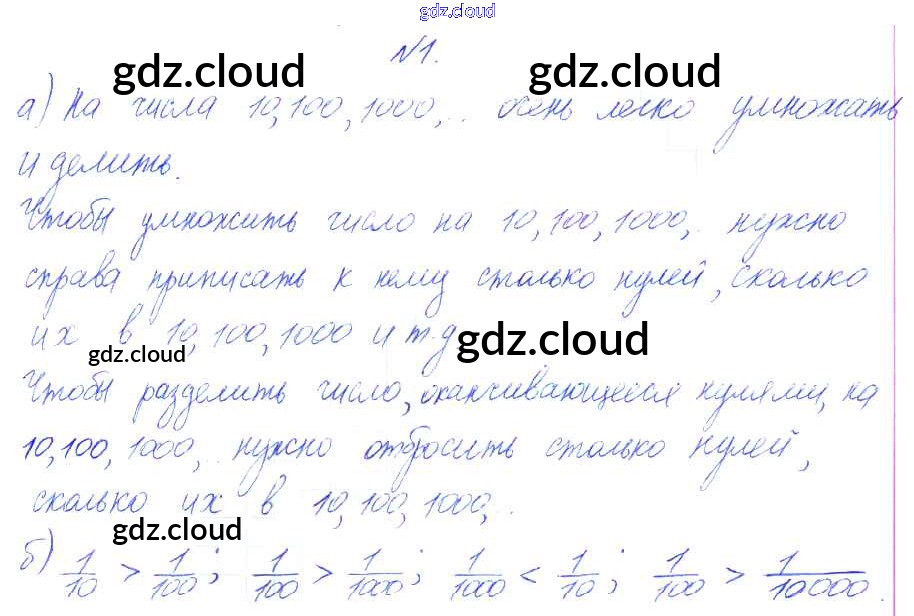 gdz.cloud
№1.
gdz.cloud gdz.cloud
а) На числа 10, 100, 1000,.. очень легко умножать
и делить.
Чтобы умножить число на 10, 100, 1000,.. нужно
справа приписать к нему столько нулей, сколько
их в 10, 100, 1000 и т.д.
gdz.cloud gdz.cloud
Чтобы разделить число, оканчивающееся нулями, на
10, 100, 1000,.. нужно отбросить столько нулей,
сколько их в 10, 100, 1000,..
gdz.cloud
б) 1/10 > 1/100; 1/100 > 1/1000; 1/1000 < 1/10; 1/100 > 1/10000.